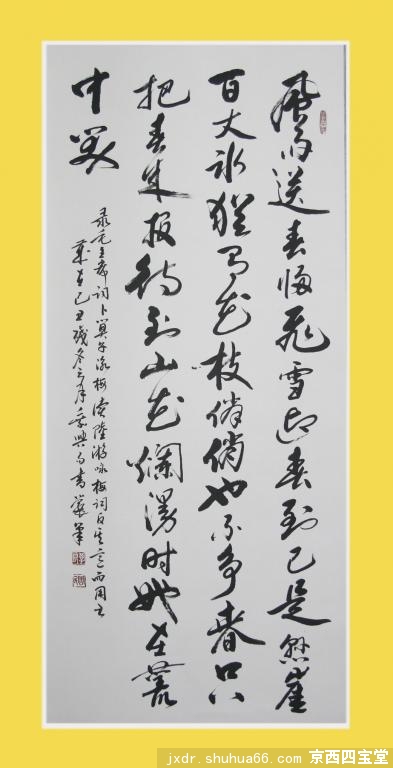 風雨送春歸飛雪迎春到已是懸崖
百丈冰猶有花枝俏俏也不爭春只
把春來報待到山花爛漫時她在叢
中笑
录毛主席词卜算子咏梅读陸游咏梅词反其意而用之
歲在己丑残冬之月
jxdr.shuhua66.com 京西四宝堂